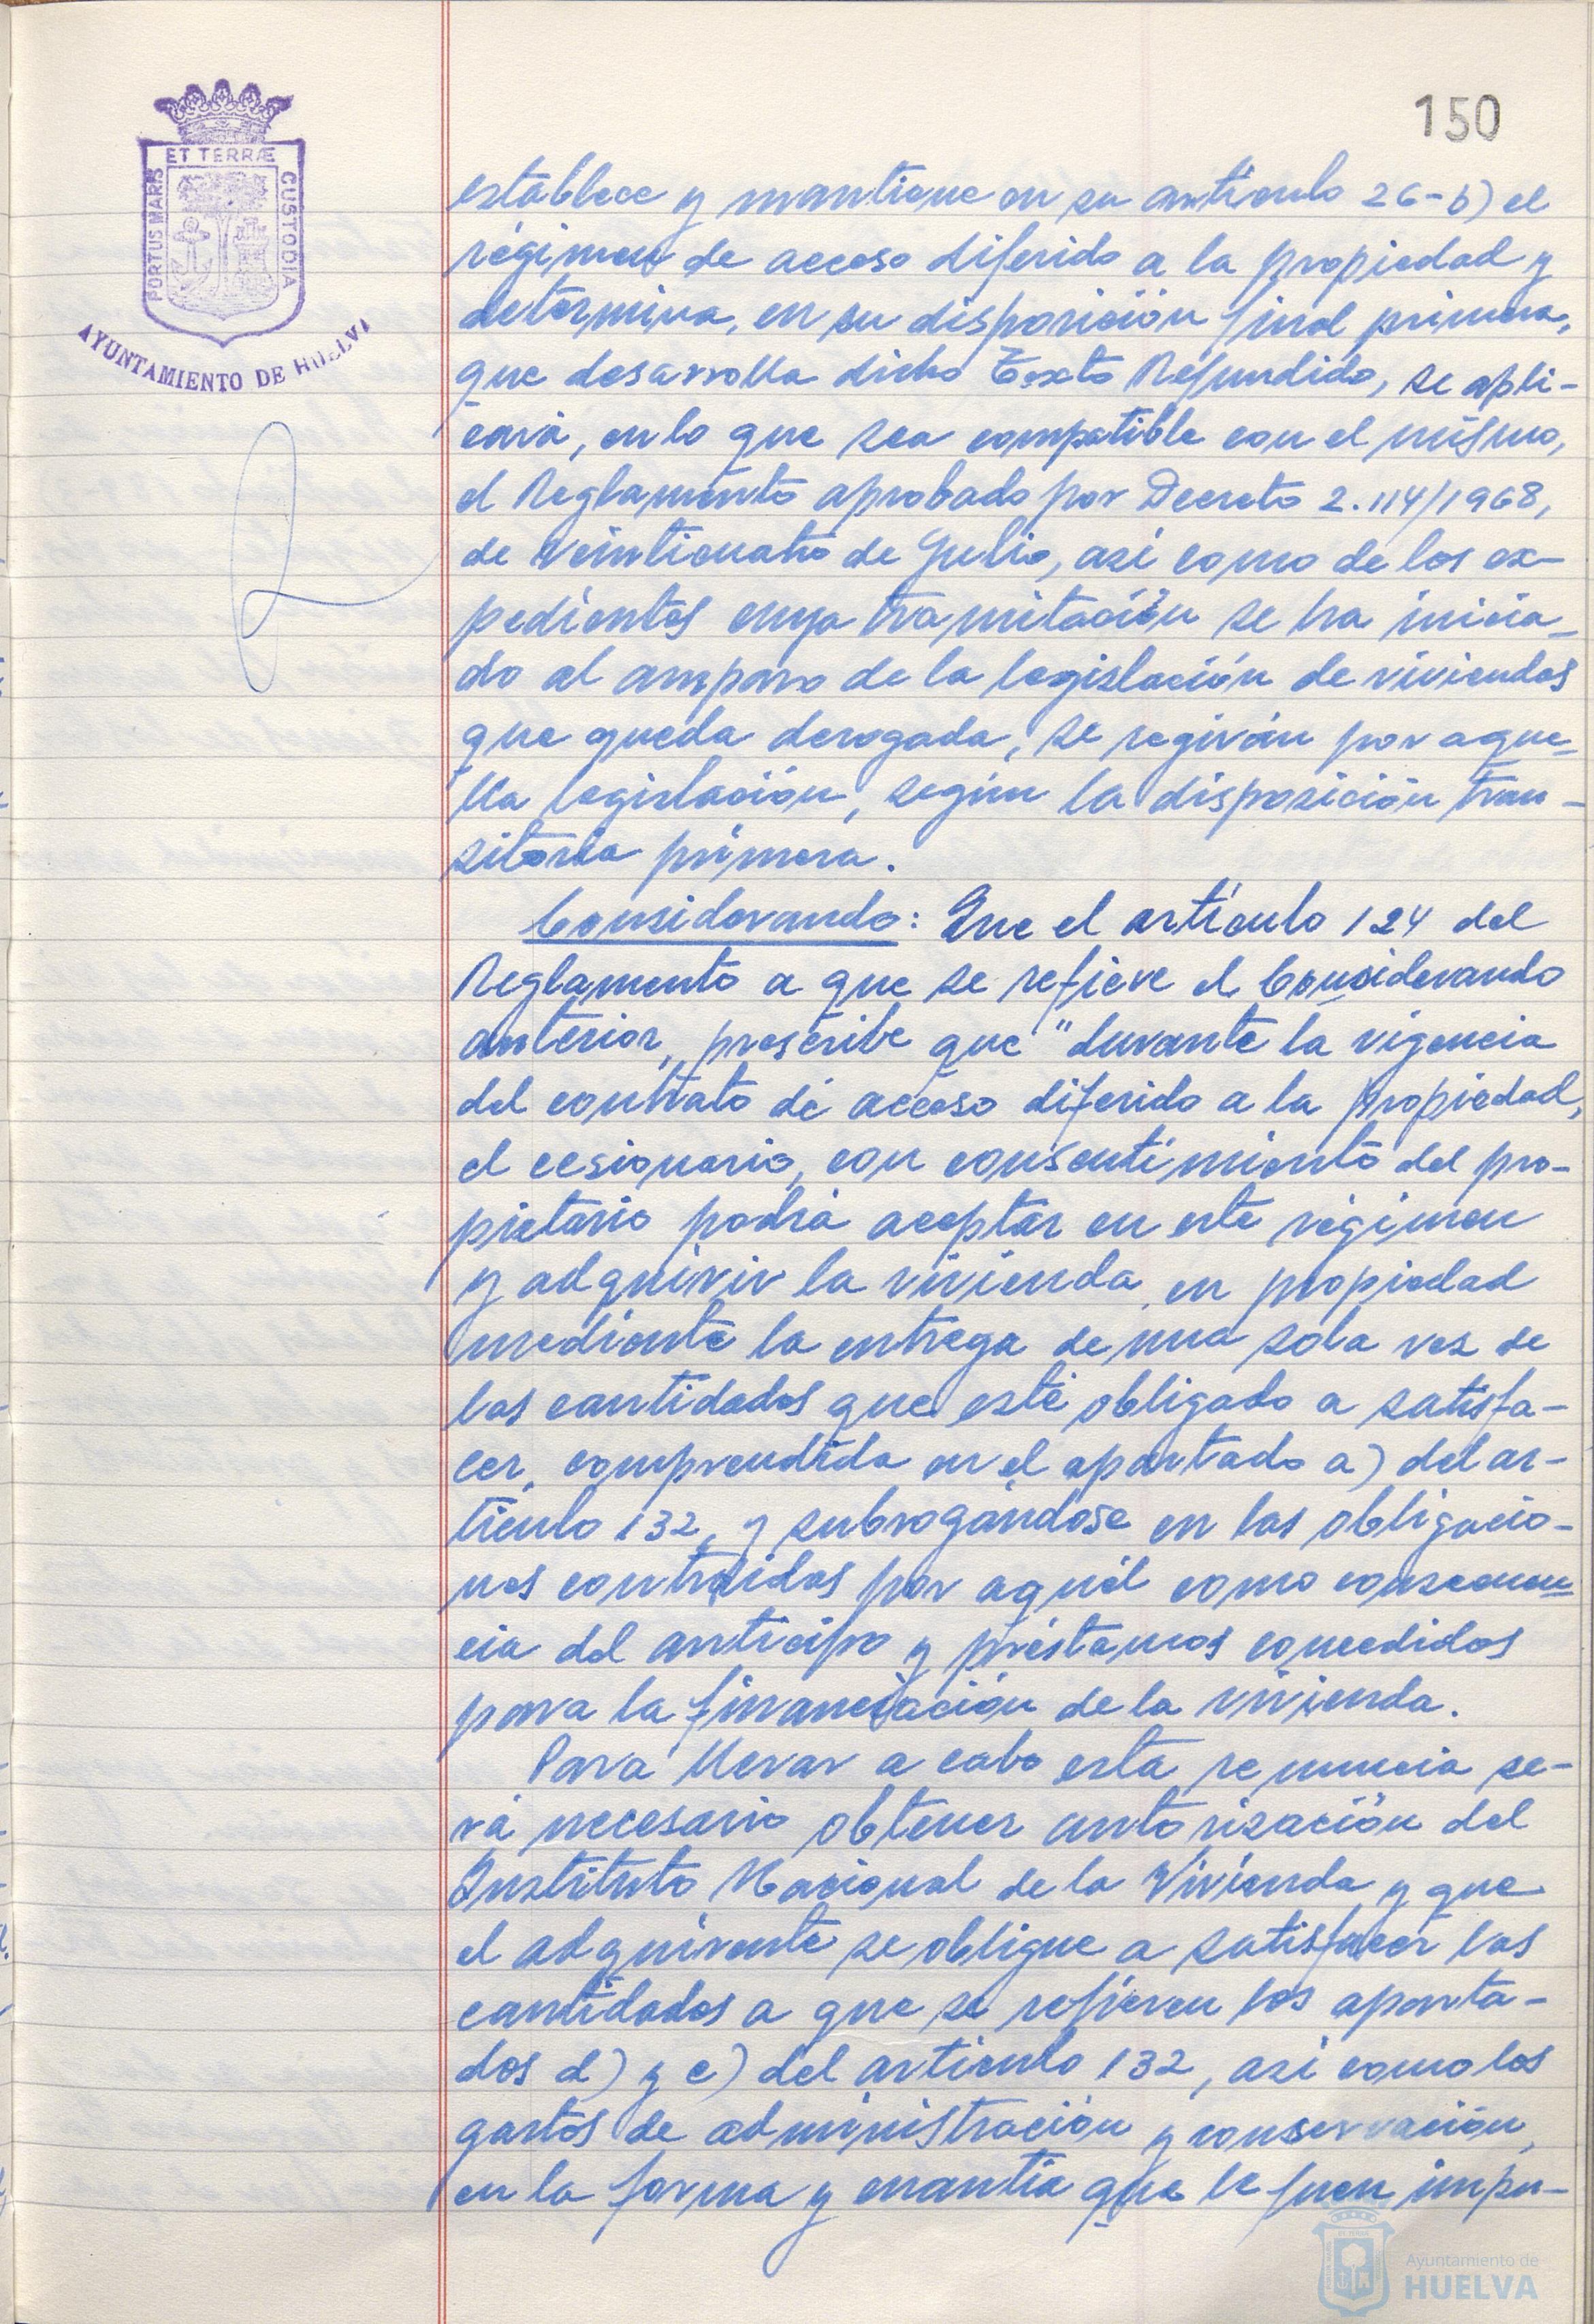 150
ET TERRÆ
PORTUS MARIS
CUSTODIA
AYUNTAMIENTO DE HUELVA
establece y mantiene en su artículo 26-b) el
régimen de acceso diferido a la propiedad y
determina, en su disposición final primera,
que desarrolla dicho Texto Refundido, se apli-
cará, en lo que sea compatible con el mismo,
el Reglamento aprobado por Decreto 2.114/1968,
de veinticuatro de Julio, así como de los ex-
pedientes cuya tramitación se ha inicia-
do al amparo de la legislación de viviendas
que queda derogada, se regirán por aque-
lla legislación, según la disposición tran-
sitoria primera.
Considerando: Que el artículo 124 del
Reglamento a que se refiere el Considerando
anterior, prescribe que "durante la vigencia
del contrato de acceso diferido a la propiedad,
el cesionario, con consentimiento del pro-
pietario podrá aceptar en este régimen
y adquirir la vivienda en propiedad
mediante la entrega de una sola vez de
las cantidades que esté obligado a satisfa-
cer, comprendida en el apartado a) del ar-
tículo 132, y subrogándose en las obligacio-
nes contraidas por aquél como consecuen-
cia del anticipo y préstamos concedidos
para la financiación de la vivienda.
Para llevar a cabo esta renuncia se-
rá necesario obtener autorización del
Instituto Nacional de la Vivienda y que
el adquirente se obligue a satisfacer las
cantidades a que se refieren los aparta-
dos d) y e) del artículo 132, así como los
gastos de administración y conservación,
en la forma y cuantía que le fuen impu-
Ayuntamiento de
HUELVA